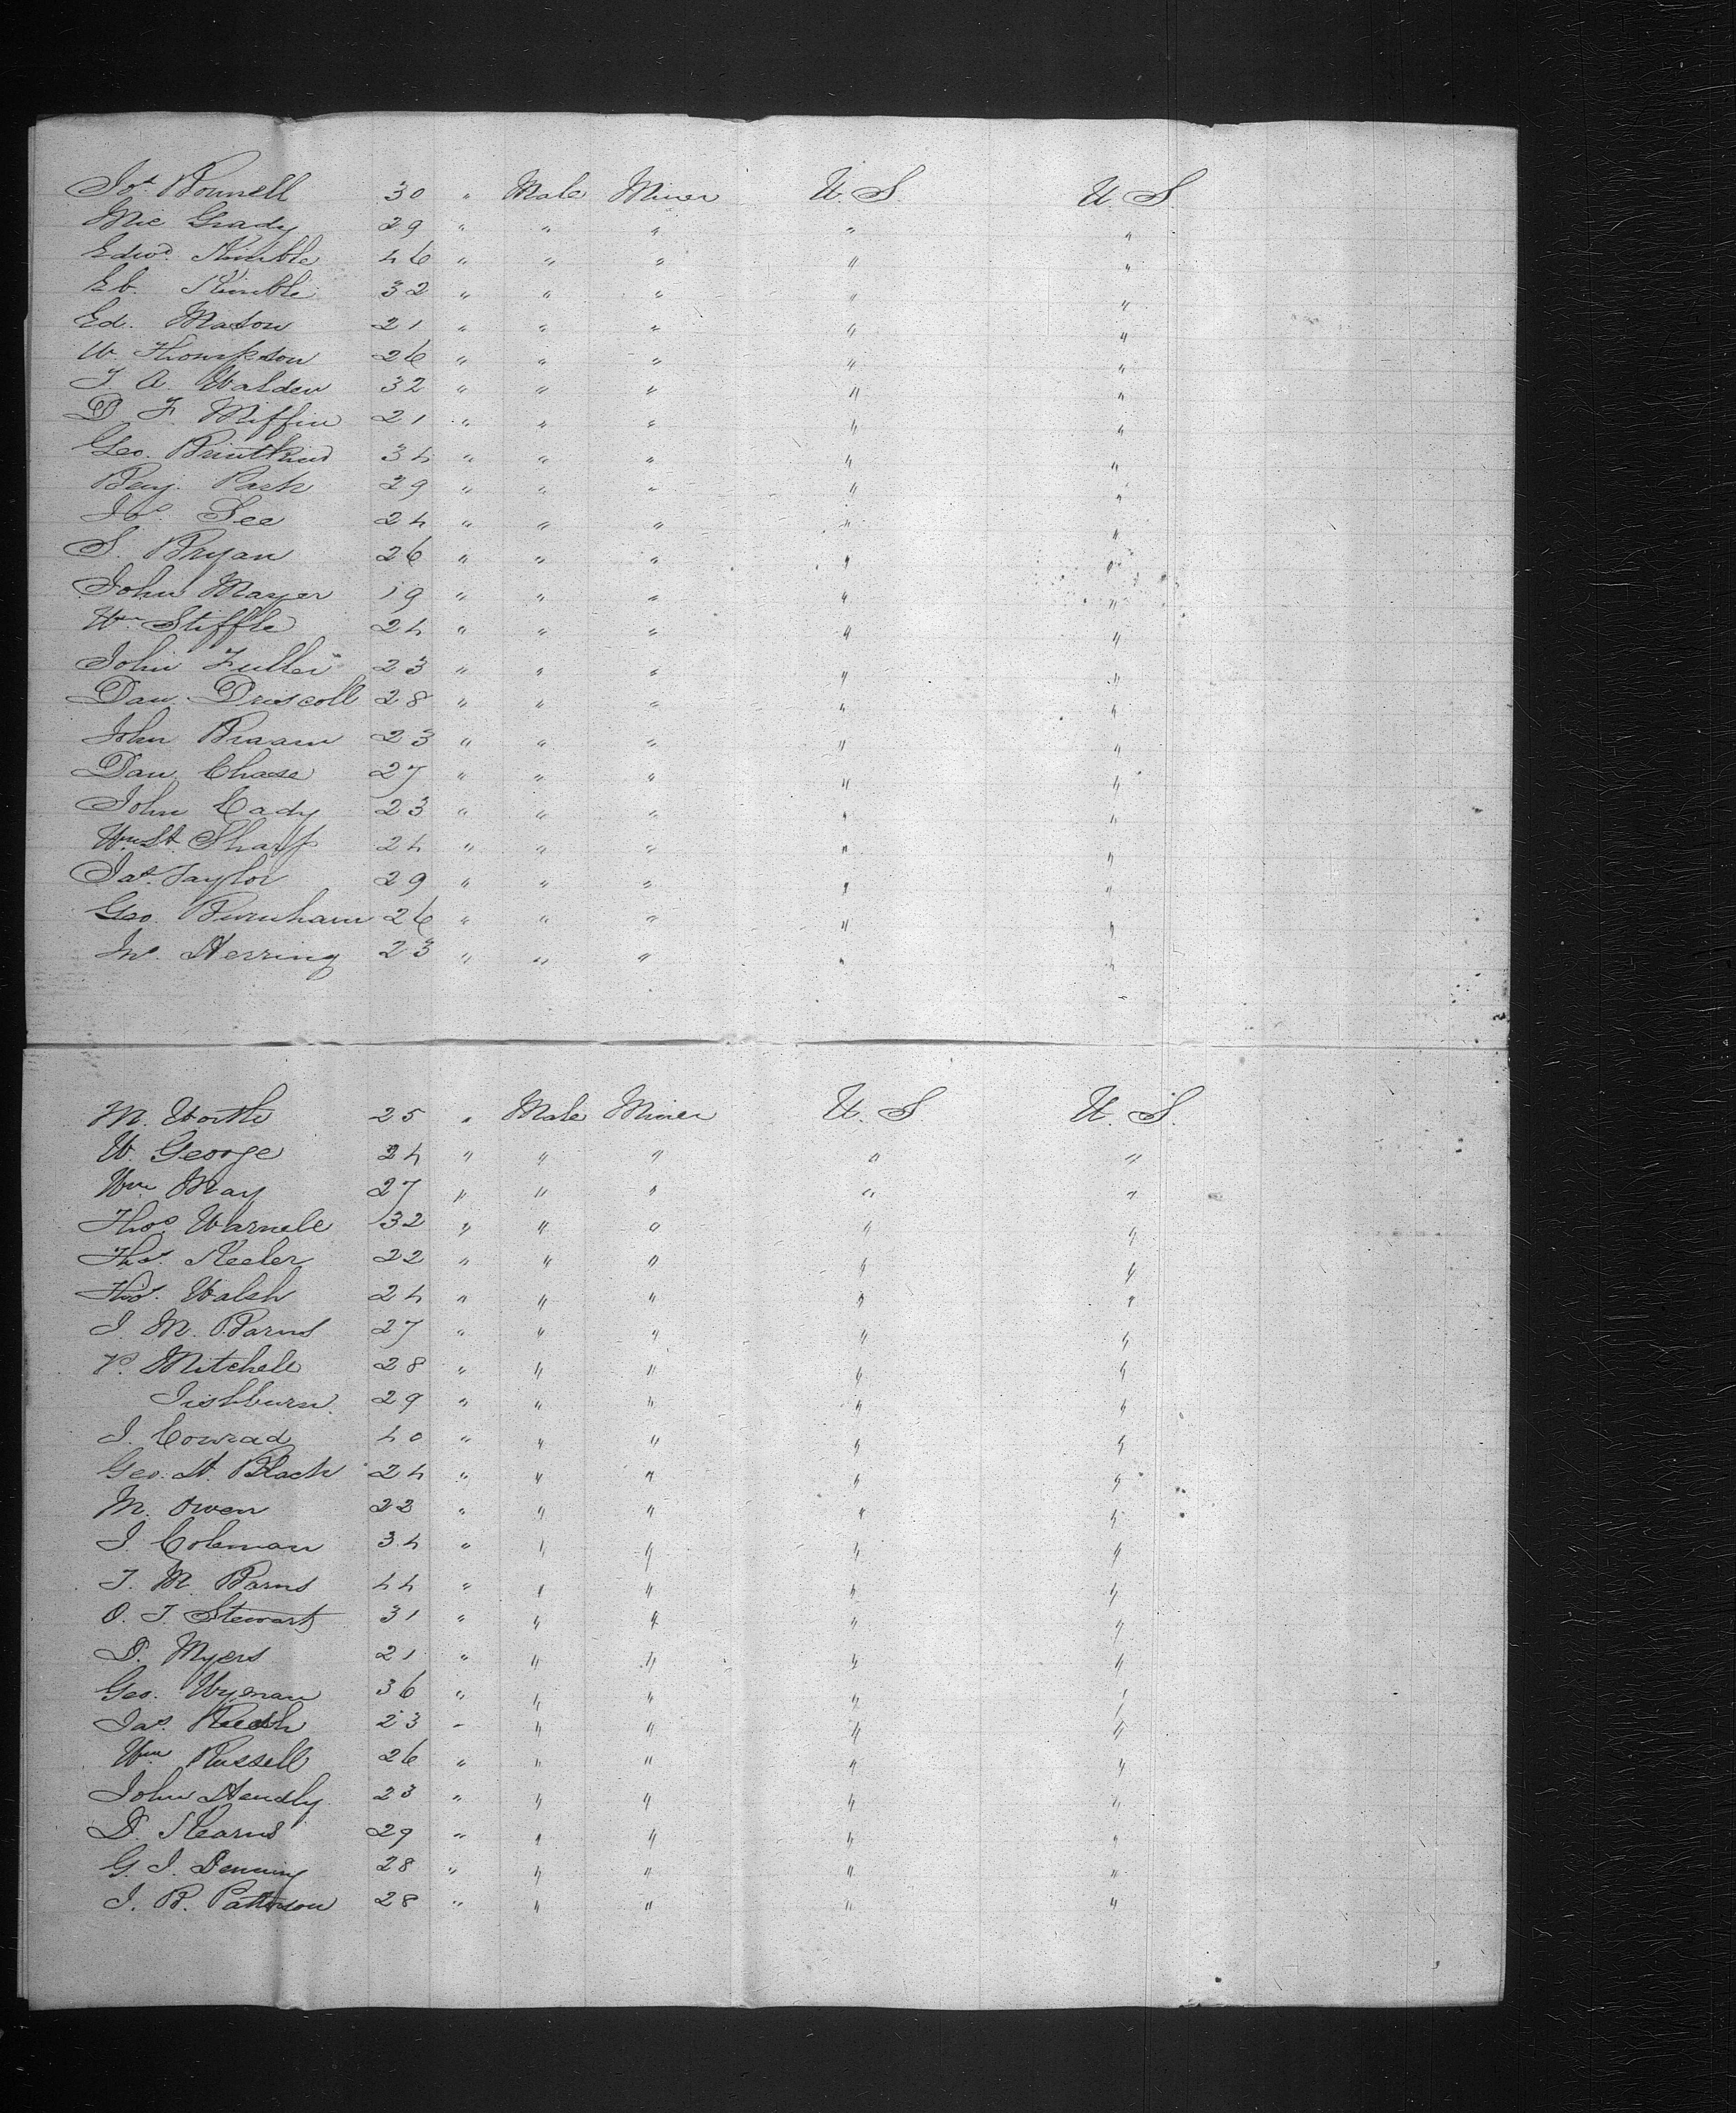 Jos. Bonnell 30 " Male Miner U. S. U. S.
Mic Grady 29 " " " " "
Edwd. Kimble 46 " " " " "
Eb. Kimble 32 " " " " "
Ed. Mason 21 " " " " "
W. Thompson 26 " " " " "
T. A. Walden 32 " " " " "
D. F. Miffin 21 " " " " "
Geo. 34 " " " " "
Benj. 29 " " " " "
Jos. See 24 " " " " "
S. Bryan 26 " " " " "
John Mayer 19 " " " " "
Wm Stiffle 24 " " " " "
John Fuller 23 " " " " "
Dan. Driscoll 28 " " " " "
John Braam 23 " " " " "
Dan. Chase 27 " " " " "
John Cady 23 " " " " "
Wm H. Sharp 24 " " " " "
Jas. Taylor 29 " " " " "
Geo. Burnham 26 " " " " "
Jno. Herring 23 " " " " "
M. Worth 25 " Male Miner U. S. U. S.
W. George 24 " " " " "
Wm May 27 " " " " "
Thos Warnell 32 " " " " "
Thos. Keeler 22 " " " " "
Thos. Walsh 24 " " " " "
J. M. Barns 27 " " " " "
P. Mitchell 28 " " " " "
Fishburn 29 " " " " "
J. Conrad 40 " " " " "
Geo. H. Black 24 " " " " "
M. Owen 22 " " " " "
J. Coleman 34 " " " " "
T. M. Barns 44 " " " " "
O. T. Stewart 31 " " " " "
D. Myers 21 " " " " "
Geo. Wyman 36 " " " " "
Jas. 23 " " " " "
Wm Russell 26 " " " " "
John Hendly 23 " " " " "
D. Kearns 29 " " " " "
G. J. Denning 28 " " " " "
J. B. Patterson 28 " " " " "